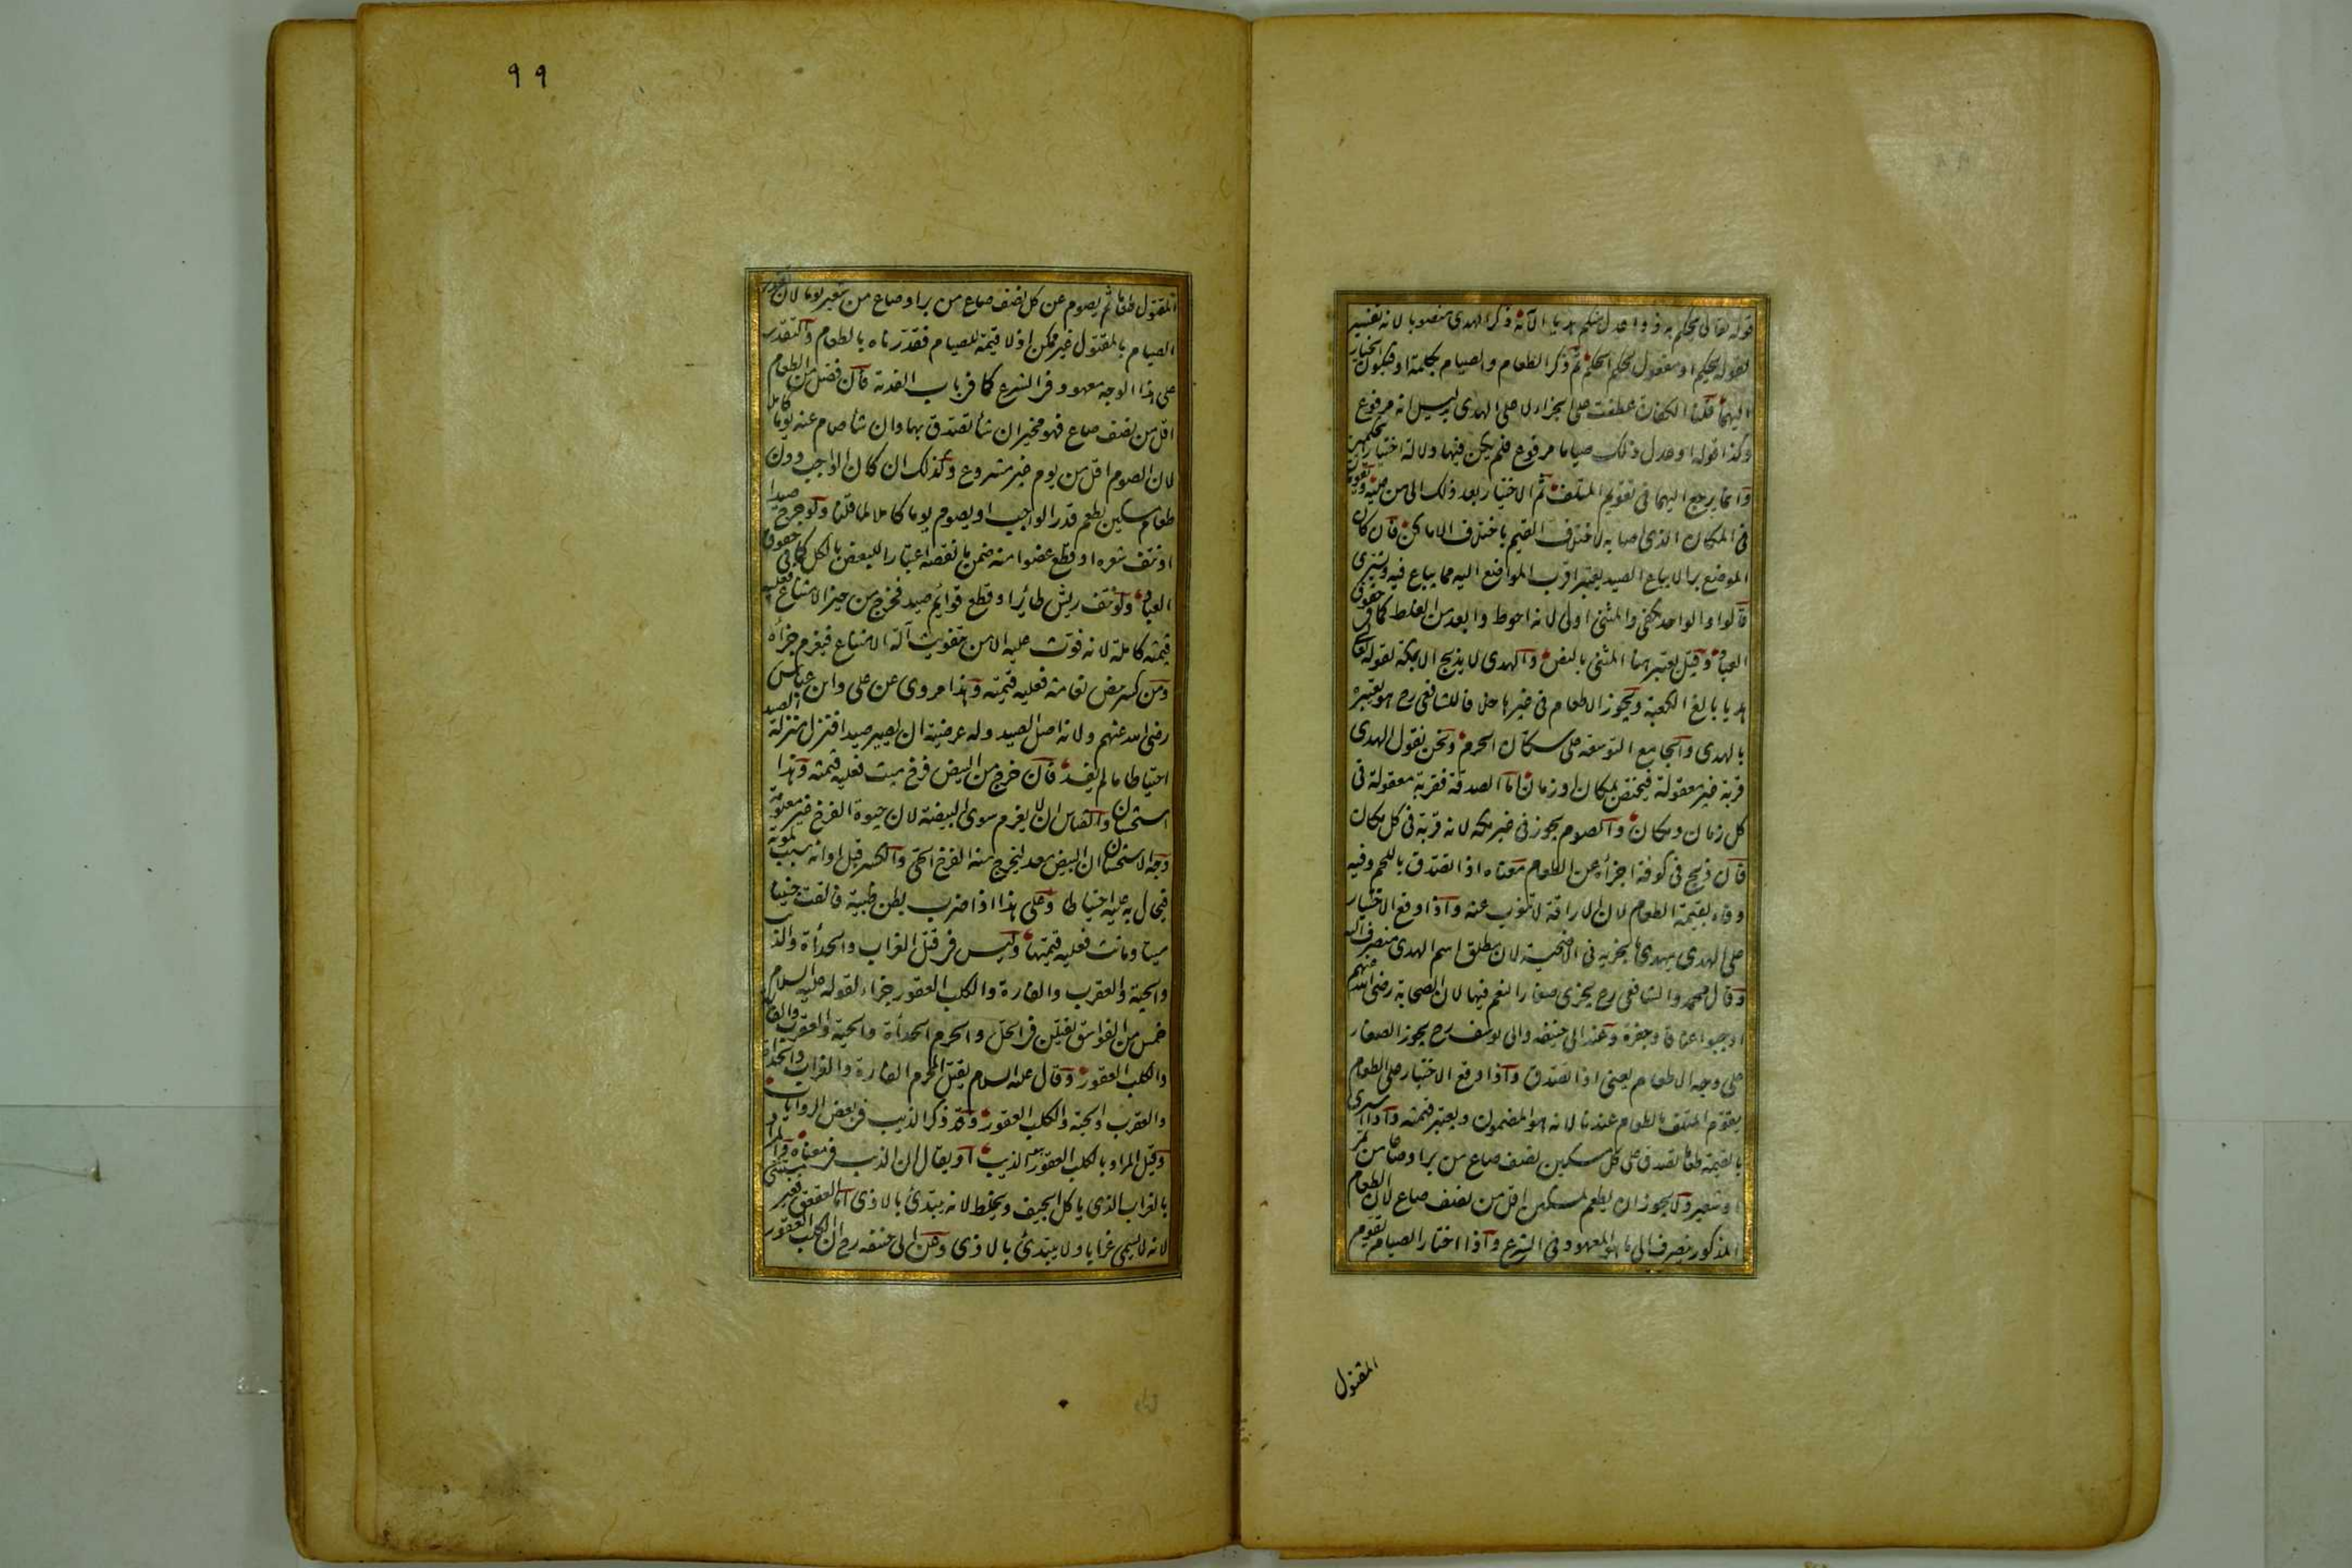 قوله تعالى يحكم به ذوا عدل منكم هديا الآية ذكر الهدى منصوبا لانه تفسير
لقوله يحكم او مفعول لحكم الحكم ثم ذكر الطعام والصيام بكلمة او فيكون الخيار
اليهما قلنا الكفارة عطفت على الجزاء لا على الهدى بدليل انه مرفوع
وكذا قوله او عدل ذلك صياما مرفوع فلم يكن فيهما دلالة اختيار الحكمين
وانما يرجع اليهما فى تقويم المتلف ثم الاختيار بعد ذلك الى من عليه ويقومان
فى المكان الذى اصابه لاختلاف القيم باختلاف الاماكن فان كان
الموضع برا لا يباع الصيد يعتبر اقرب المواضع اليه مما يباع فيه ويشترى
قالوا والواحد يكفى والمثنى اولى لانه احوط وابعد من الغلط كما فى حقوق
العباد وقيل يعتبر هنا المثنى بالنص والهدى لا يذبح الا بمكة لقوله تعالى
هديا بالغ الكعبة ويجوز الاطعام فى غيرها خلافا للشافعى رح هو يعتبره
بالهدى والجامع التوسعة على سكان الحرم ونحن نقول الهدى
قربة غير معقولة فيختص بمكان او زمان اما الصدقة فقربة معقولة فى
كل زمان ومكان والصوم يجوز فى غير مكة لانه قربة فى كل مكان
فان ذبح فى كوفة اجزأه عن الطعام معناه اذا تصدق باللحم وفيه
وفاء بقيمة الطعام لان الاراقة لا تنوب عنه واذا وقع الاختيار
على الهدى يهدى ما يجزيه فى الاضحية لان مطلق اسم الهدى منصرف اليه
وقال محمد والشافعى رح يجزى صغار النعم فيها لان الصحابة رضى الله عنهم
اوجبوا عناقا وجفرة وعند ابى حنيفه وابى يوسف رح يجوز الصغار
على وجه الاطعام يعنى اذا تصدق واذا وقع الاختيار على الطعام
يقوم المتلف بالطعام عندنا لانه هو المضمون ويعتبر قيمته واذا اشترى
بالقيمة طعاما تصدق على كل مسكين نصف صاع من بر او صاعا من تمر
او شعير ولا يجوز ان يطعم لمسكين اقل من نصف صاع لان الطعام
المذكور ينصرف الى ما هو المعهود فى الشرع واذا اختار الصيام يقوم
المقتول
٩٩
المقتول طعاما ثم يصوم عن كل نصف صاع من بر او صاع من شعير يوما لان تقدير
الصيام بالمقتول غير ممكن اذ لا قيمة للصيام فقدرناه بالطعام والتقدير
على هذا الوجه معهود فى الشرع كما فى باب الفدية فان فضل من الطعام
اقل من نصف صاع فهو مخير ان شأ تصدق بها وان شأ صام عنه يوما كاملا
لان الصوم اقل من يوم غير مشروع وكذلك ان كان الواجب دون
طعام مسكين يطعم قدر الواجب او يصوم يوما كاملا لما قلنا ولو جرح صيدا
او نتف شعره او قطع عضوا منه ضمن ما نقصه اعتبارا للبعض بالكل كما فى حقوق
العباد ولو نتف ريش طائر او قطع قوايم صيد فخرج من حيز الامتناع فعليه
قيمته كاملة لانه فوت عليه الامن بتفويت آلة الامتناع فيغرم جزأه
ومن كسر بيض نعامة فعليه قيمته وهذا مروى عن على وابن عباس
رضى الله عنهم ولانه اصل الصيد وله عرضية ان يصير صيدا فنزل منزلة الصيد
احتياطا ما لم يفسد فان خرج من البيض فرخ ميت فعليه قيمته وهذا
استحسان والقياس ان لا يغرم سوى البيضة لان حيوة الفرخ غير معلومة
وجه الاستحسان ان البيض معد ليخرج منه الفرخ الحى والكسر قبل اوانه سبب لموته
فيحال به عليه احتياطا وعلى هذا اذا ضرب بطن ظبية فالقت جنينا
ميتا وماتت فعليه قيمتها وليس فى قتل الغراب والحدأة والذئب
والحية والعقرب والفارة والكلب العقور جزاء لقوله عليه السلام
خمس من الفواسق يقتلن فى الحل والحرم الحدأة والحية والعقرب والفارة
والكلب العقور وقال عليه السلام يقتل المحرم الفارة والغراب والحدأة
والعقرب والحية والكلب العقور وقد ذكر الذيب فى بعض الروايات
وقيل المراد بالكلب العقور الذيب او يقال ان الذيب فى معناه والمراد
بالغراب الذى ياكل الجيف ويخلط لانه يبتدئ بالاذى اما العقعق فغير مستثنى
لانه لا يسمى غرابا ولا يبتدئ بالاذى وعن ابى حنيفه رح ان الكلب العقور